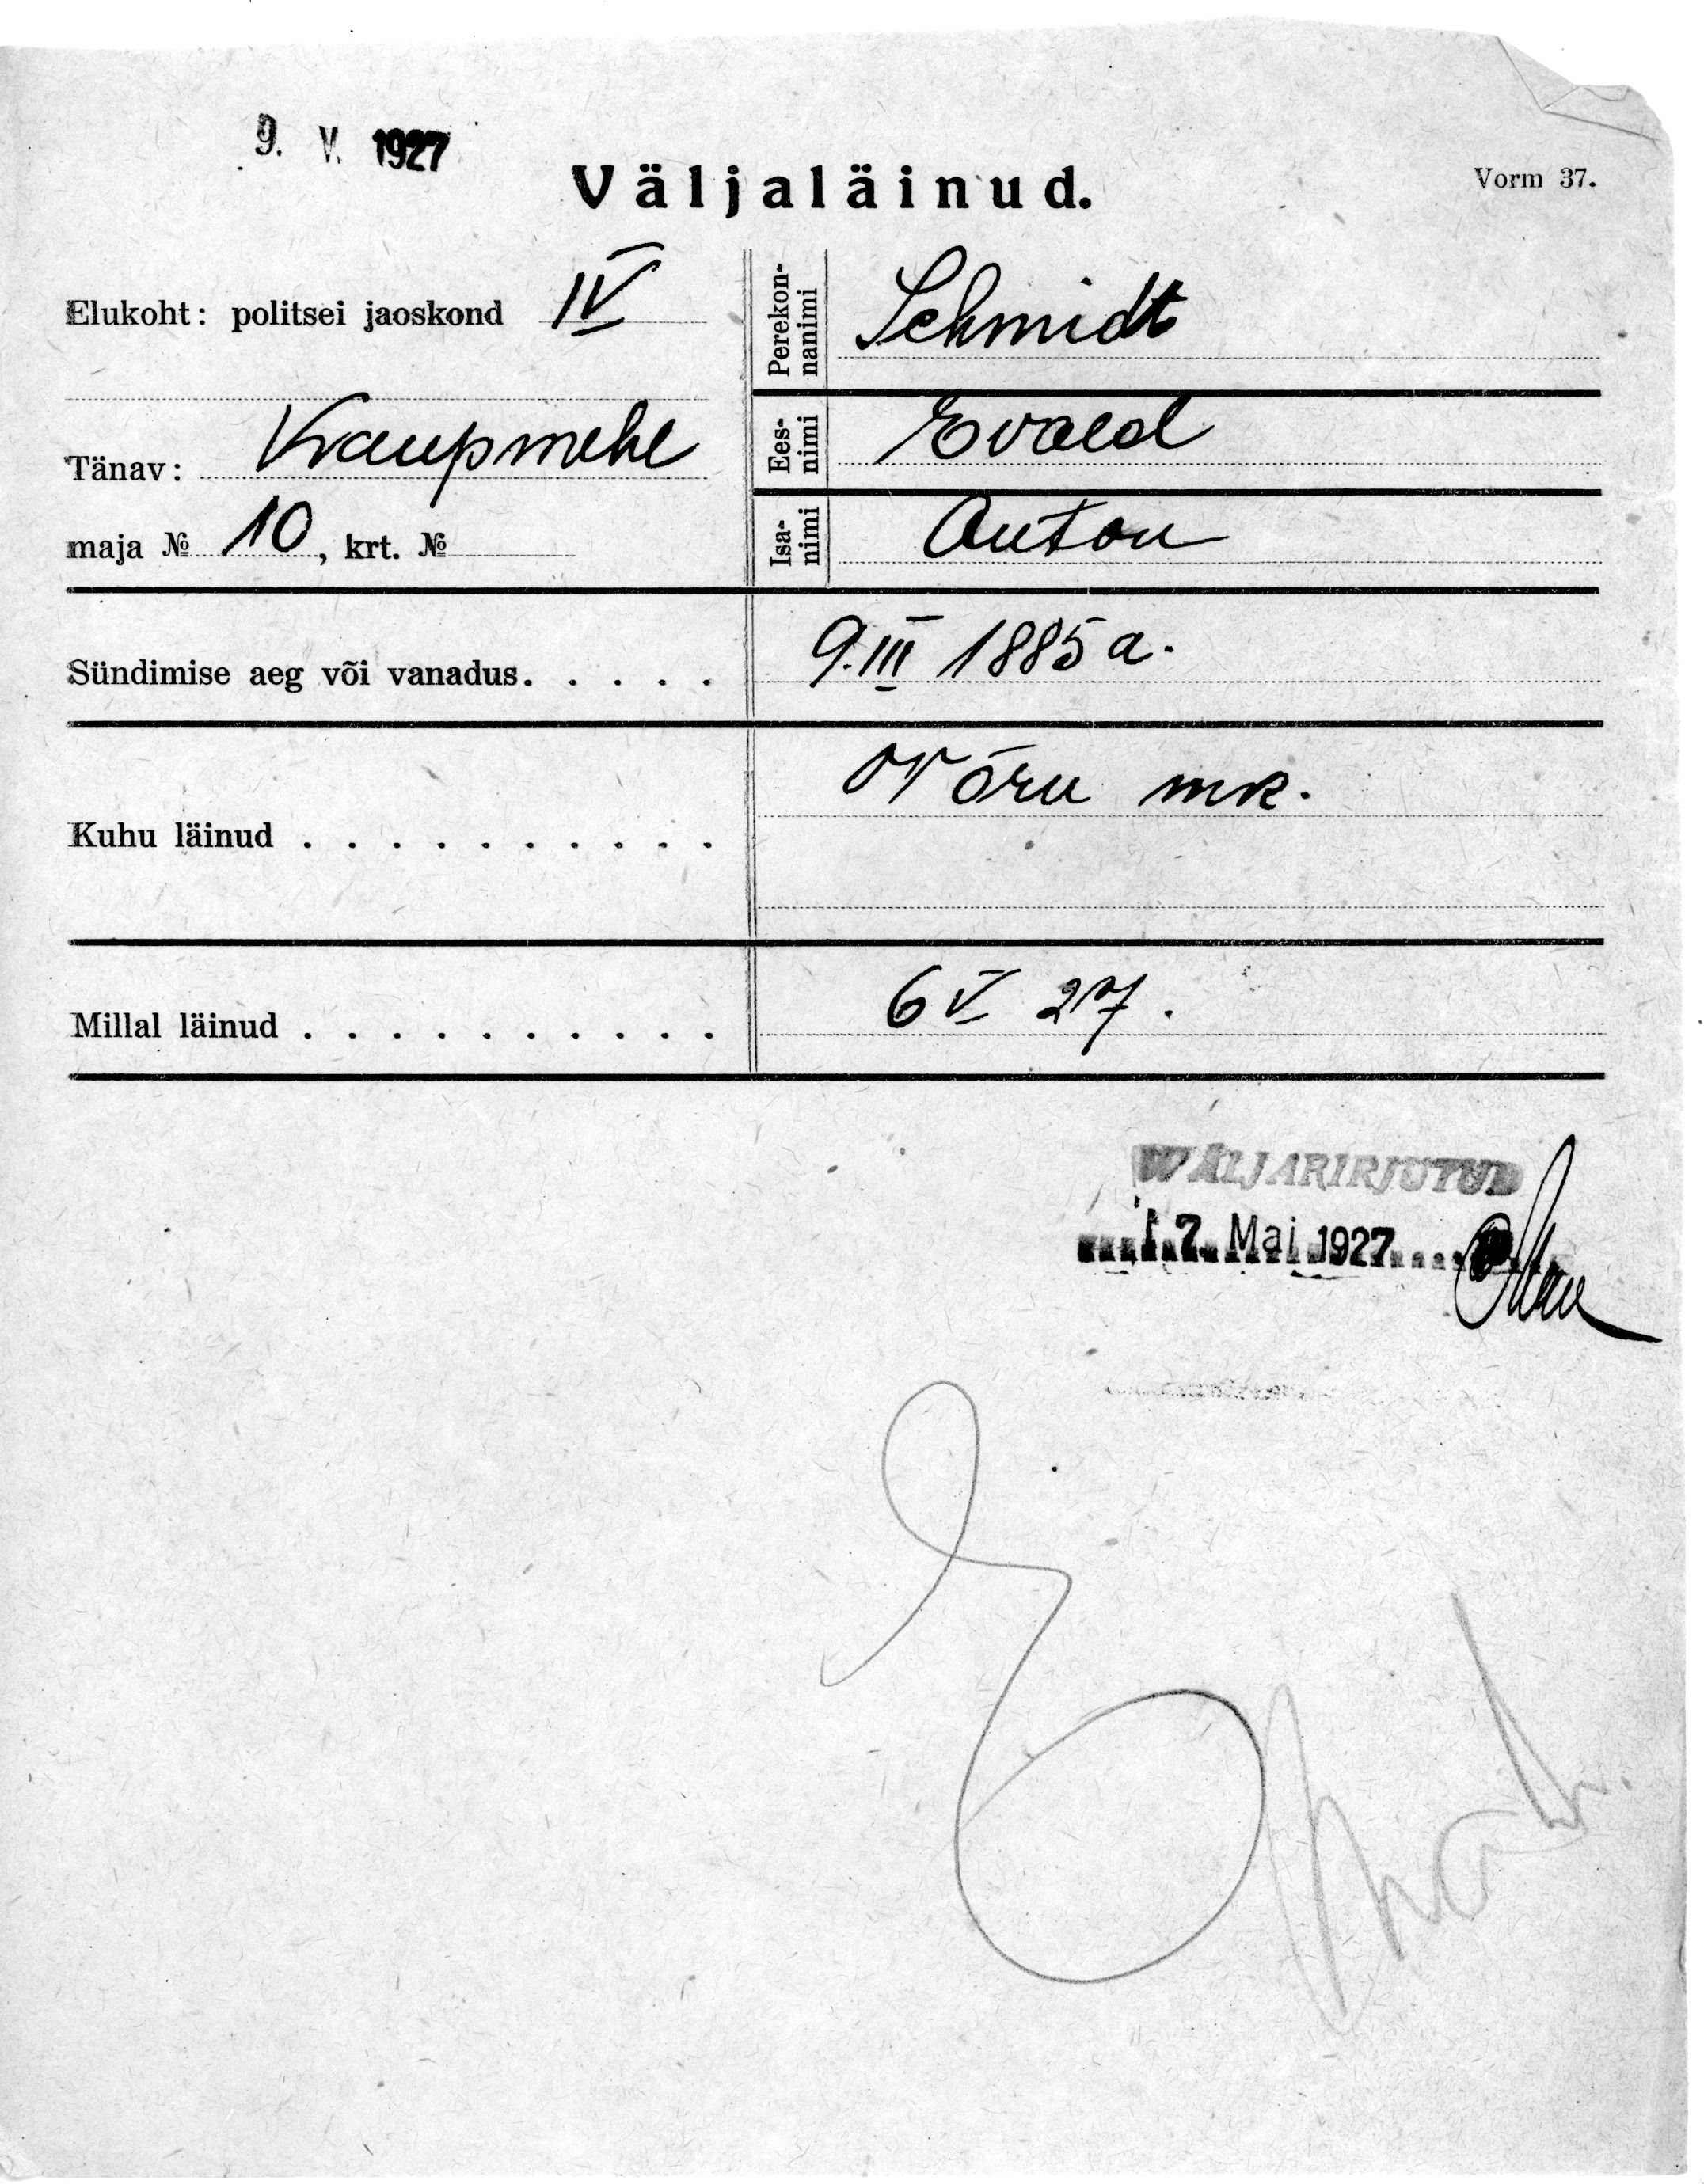 9. V. 1927
Väljaläinud.
Vorm 37.
Elukoht: politsei jaoskond IV
Tänav: Kaupmehe
maja № 10, krt. №
Perekonnanimi Schmidt
Eesnimi Evald
Isanimi Anton
Sündimise aeg või vanadus. . . . . 9.III 1885 a.
Kuhu läinud . . . . . . . . . . Võru mk.
Millal läinud . . . . . . . . . . 6 V 27.
WÄLJAKIRJUTUD
17. Mai 1927